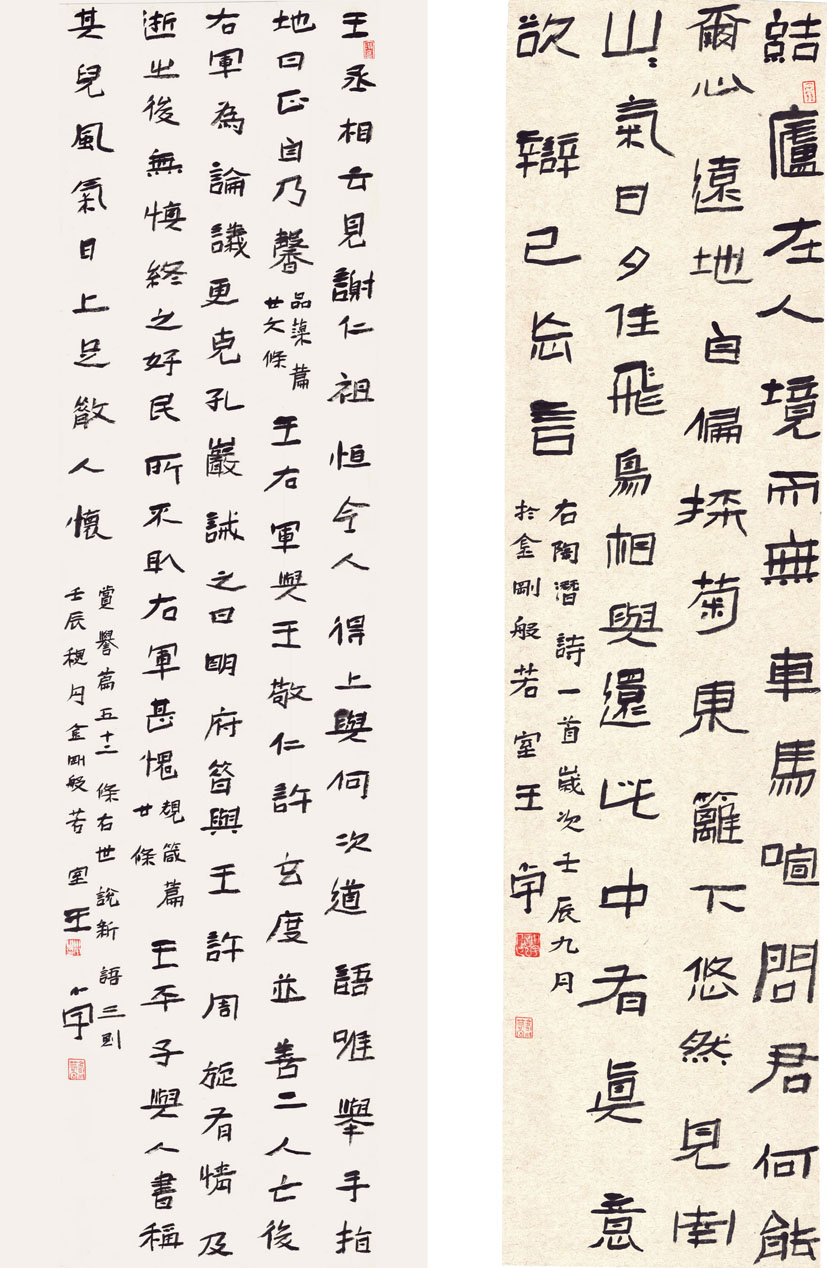 結廬在人境而無車馬喧問君何能
爾心遠地自偏採菊東籬下悠然見南
山〻氣日夕佳飛鳥相與還此中有真意
欲辯已忘言
右陶潛詩一首歲次壬辰九月
於金剛般若室王
王丞相云見謝仁祖恒令人得上與何次道語唯舉手指
地曰正自乃馨
品藻篇
廿六條
王右軍與王敬仁許玄度並善二人亡後
右軍為論議更克孔巖誡之曰明府昔與王許周旋有情及
逝之後無慎終之好民所不取右軍甚愧
規箴篇
廿條
王平子與人書稱
其兒風氣日上足散人懷
賞譽篇五十二條右世說新語三則
壬辰穐月金剛般若室王